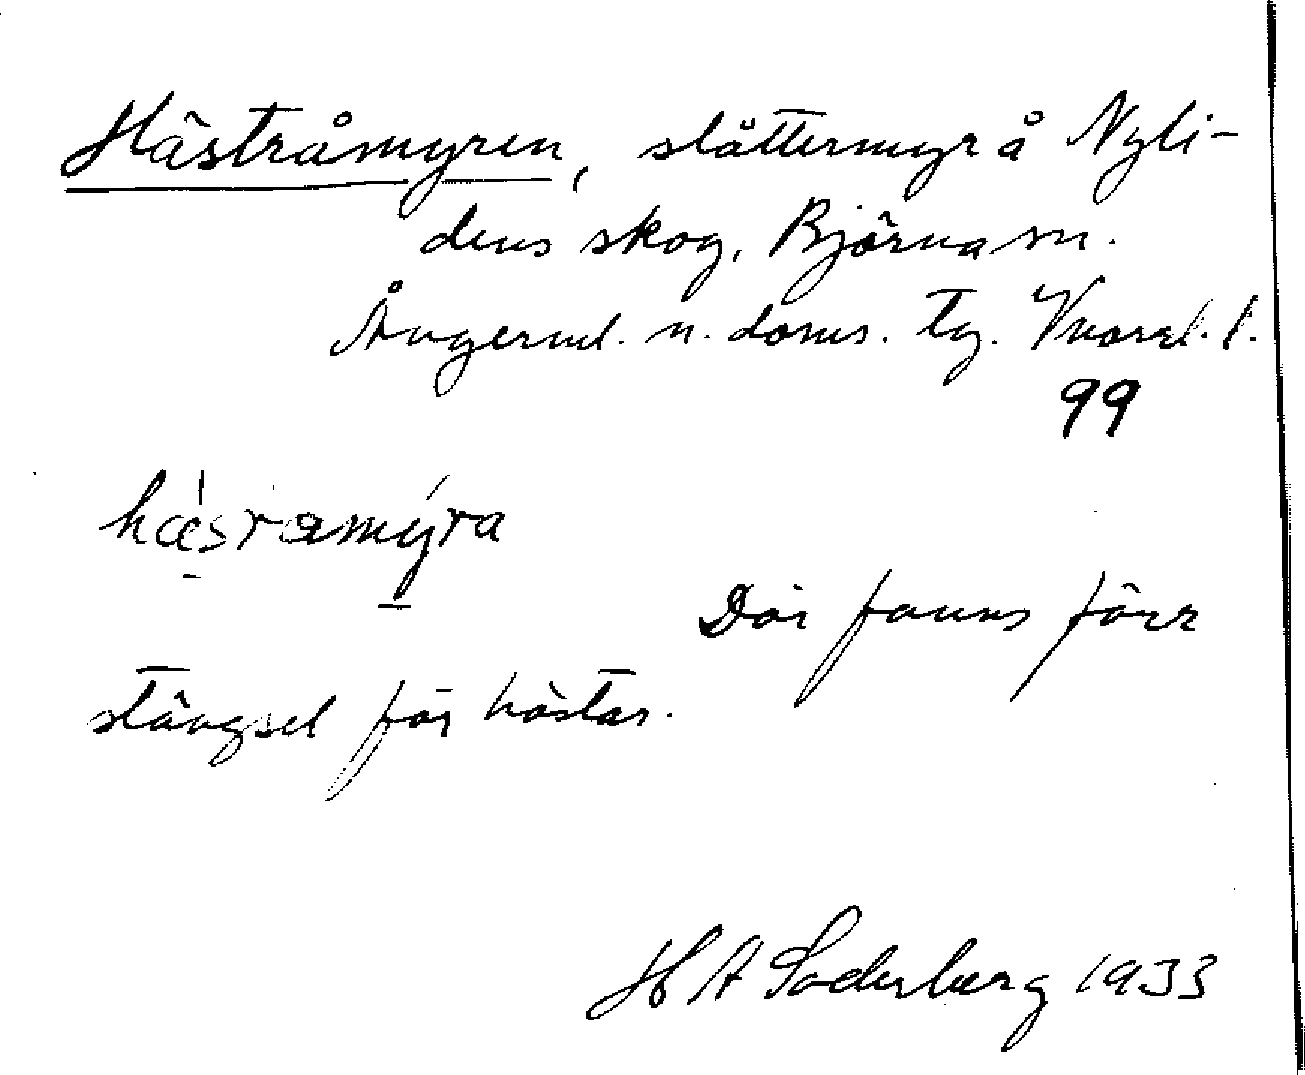 Hästråmyren, slåttermyr å Nyli-
dens skog, Björna sn.
Ångerml. n. doms. tg. Västerl. l.
99
hæsramyra
Där fanns förr
stängsel för hästar.
H A Söderberg 1933